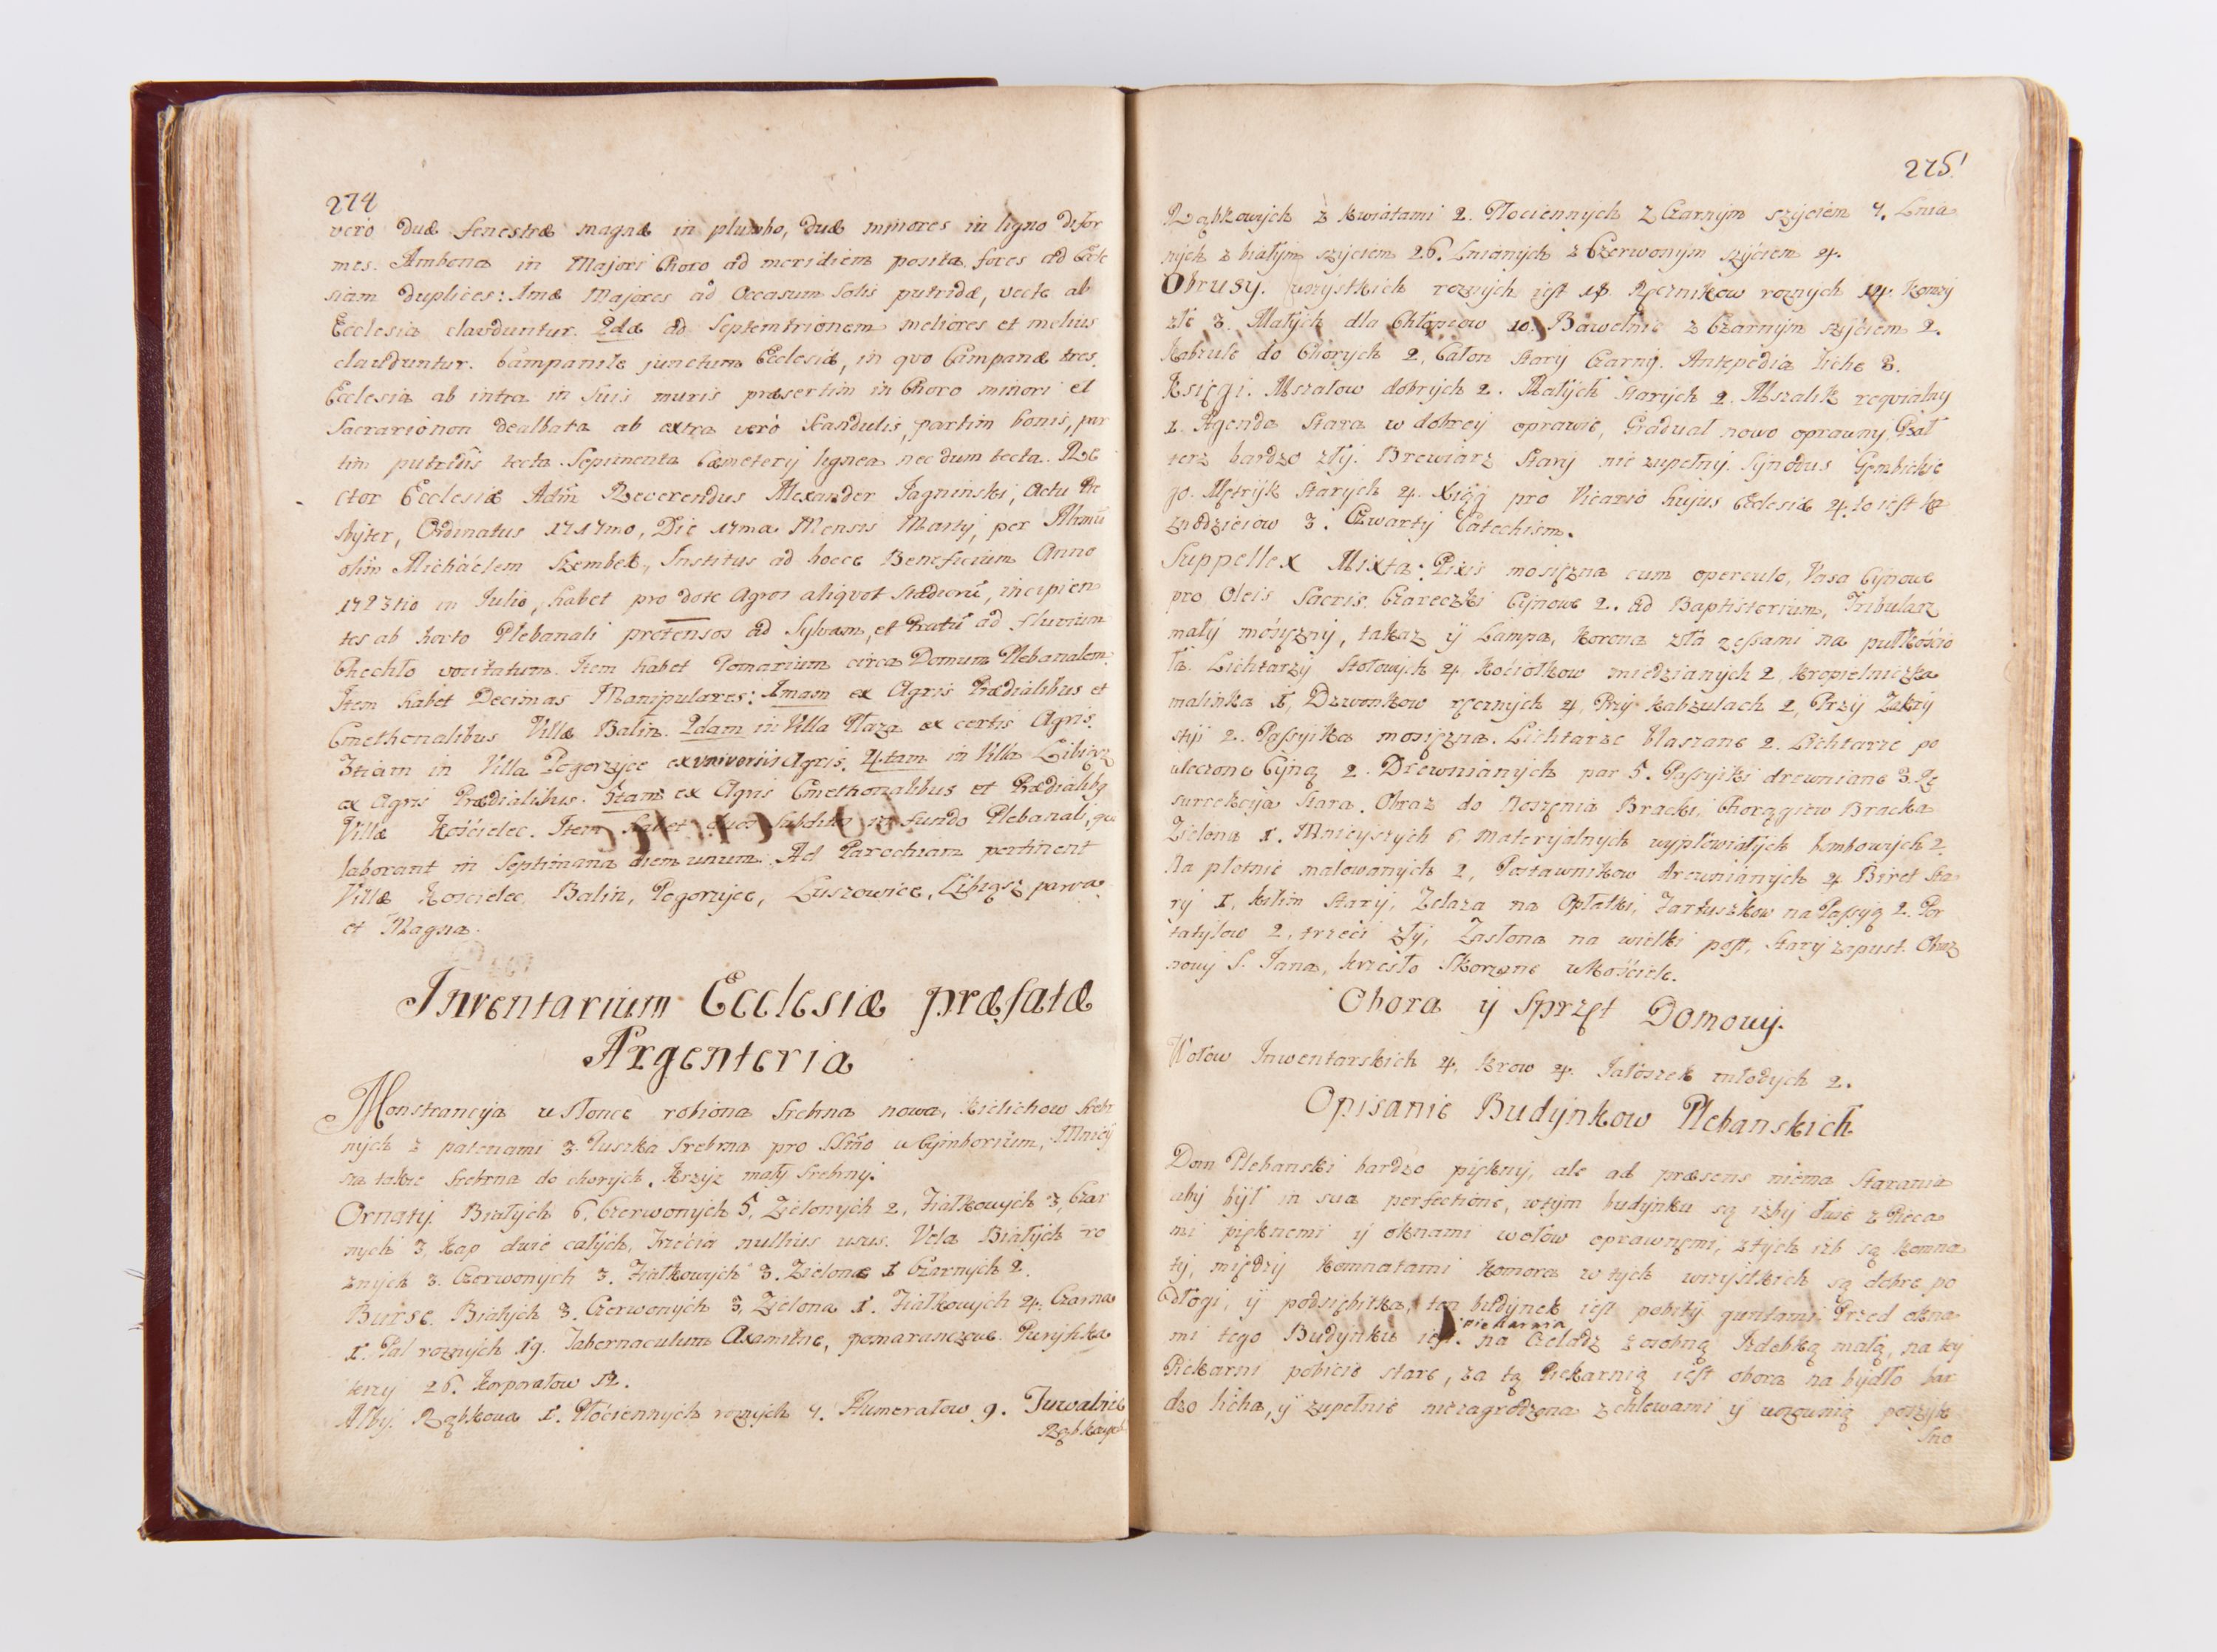 274
vero duæ fenestræ magnæ in plumbo, duæ minores in ligno defor
mes. Ambona in Majori Choro ad meridiem posita, fores ad Eccle
siam duplices: 1mæ Majores ad Occasum Solis putridæ, vecte ab
Ecclesia clauduntur. 2dæ ad Septemtrionem meliores et melius
clauduntur. Campanile junctum Ecclesiæ, in quo Campanæ tres.
Ecclesia ab intra in suis muris præsertim in Choro minori et
Sacrario non dealbata ab extra verò scandulis, partim bonis, par
tim putridis tecta. Sepimenta Cæmeterij lignea nec dum tecta. Re
ctor Ecclesiæ Adm Reverendus Alexander Jagninski, Actu Pre
sbyter, Ordinatus 1717mo, Die 17ma Mensis Martij, per Illmū
olim Michäelem Szembek, Institus ad hocce Beneficium Anno
1723tio in Julio, habet pro dote Agros aliquot Stadiorū, incipien
tes ab horto Plebanali protensos ad Sylvam, et Pratū ad fluvium
Chechło vocitatum. Item habet Pomarium circa Domum Plebanalem.
Item habet Decimas Manipulares: 1mam ex Agris Prædialibus et
Cmethonalibus Villæ Balin. 2dam in Villa Płaza ex certis Agris.
3tiam in Villa Pogorzyce ex universis Agris. 4tam in Villa Libiąż
ex Agris Prædialibus. 5tam ex Agris Cmethonalibus et Prædialibq
Villæ Kościelec. Item habet duos subditos in fundo Plebanali, qui
laborant in Septimana diem unum. Ad Parochiam pertinent
Villæ Koscielec, Balin, Pogorzyce, Luszowice, Libiąsz parva
et Magna.
Inventarium Ecclesiæ præfatæ
Argenteria
Monstrancyja w słońce robiona Srebrna nowa, Kielichow Srebr
nych z patenami 3. Puszka Srebrna pro SSmo w Cymborium, Mniey
sza takze Srebrna do chorych, Krzyz mały Srebrny.
Ornaty. Białych 6, Czerwonych 5, Zielonych 2, Fiałkowych 3, Czar
nych 3, Kap dwie całych, trzecia nullius usus. Vela Białych ro
znych 3. Czerwonych 3. Fiałkowych 3. Zielone 1 Czarnych 2.
Burse. Białych 3. Czerwonych 3, Zielona 1. Fiałkowych 4. Czarna
1. Pal roznych 19. Tabernaculum Axamitne, pomaranczowe. Puryfika
terzy 26. Korporałow 12.
Alby. Rąbkowa 1. Płóciennych roznych 4. Humerałow 9. Tuwalnie
Rąbkowych
275
Rąbkowych z kwiatami 2. Płociennych z Czarnym szyciem 4. Lnia
nych z białym szyciem 26. Lnianych z Czerwonym szyciem 4.
Obrusy. wszystkich roznych jest 18. Ręcznikow roznych 14. Komzy
złe 3. Małych dla Chłopcow 10. Bawełnic z Czarnym szyciem 2.
Kabzule do Chorych 2, Całon stary Czarny. Antepedia liche 8.
Księgi. Mszałow dobrych 2. Małych starych 2. Mszalik requialny
1. Agenda Stara w dobrey oprawie, Gradual nowo oprawny, Psał
terz bardzo zły. Brewiarz Stary nie zupełny. Synodus Gembickie
go. Metryk starych 4. Xiąg pro Vicario hujus Ecclesiæ 4. to iest ka
znodzieiow 3. Czwarty Catechism.
Suppellex Mixta: Pixis mosiężna cum operculo, Vasa Cynowe
pro Oleis Sacris. Czareczki Cynowe 2. ad Baptisterium, Tribularz
mały mosiężny, takaz y Lampa, Korona zła z essami na pułkościo
ła. Lichtarzy Stołowych 4. Kociołkow miedzianych 2, Kropielniczka
malinka 1, Dzwonkow ręcznych 4, Przy Kabzulach 2, Przy Zakry
styi 2. Passyika mosiężna. Lichtarze blaszane 2. Lichtarze po
wleczone Cyną 2. Drewnianych par 5. Passyiki drewniane 3. Re
surrekcyja Stara. Obraz do Noszenia Bracki, Chorągiew Bracka
Zielona 1. Mnieyszych 6, materyjalnych wypłowiałych kombowych 2.
Na płotnie malowanych 2, Postawnikow drewnianych 4. Biret sta
ry 1, kilim stary, Zelaza na Opłatki, Fartuszkow na Passyą 2. Por
tatylow 2, trzeci zły, Zasłona na wielki post, Stary zapust. Obraz
nowy S. Jana, krzesło Skorzane w Kościele.
Obora y Sprzęt Domowy.
Wołow Inwentarskich 4, Krow 4. Jałoszek młodych 2.
Opisanie Budynkow Plebanskich
Dom Plebanski bardzo piękny, ale ad præsens niema Starania
aby był in sua perfectione, w tym budynku są izby dwie z Pieca
mi pięknemi y oknami w ołow oprawnemi, z tych izb są komna
ty, między komnatami komora w tych wszystkich są dobre po
dłogi, y podsiębitka, ten budynek iest pobity guntami. Przed okna
mi tego Budynku iest piekarnia na Czeladz z osobną Izdebką małą, na tey
Piekarni pobicie stare, za tą Piekarnią iest obora na bydło bar
dzo licha, y zupełnie niezagrodzona z chlewami y wozownią
sno